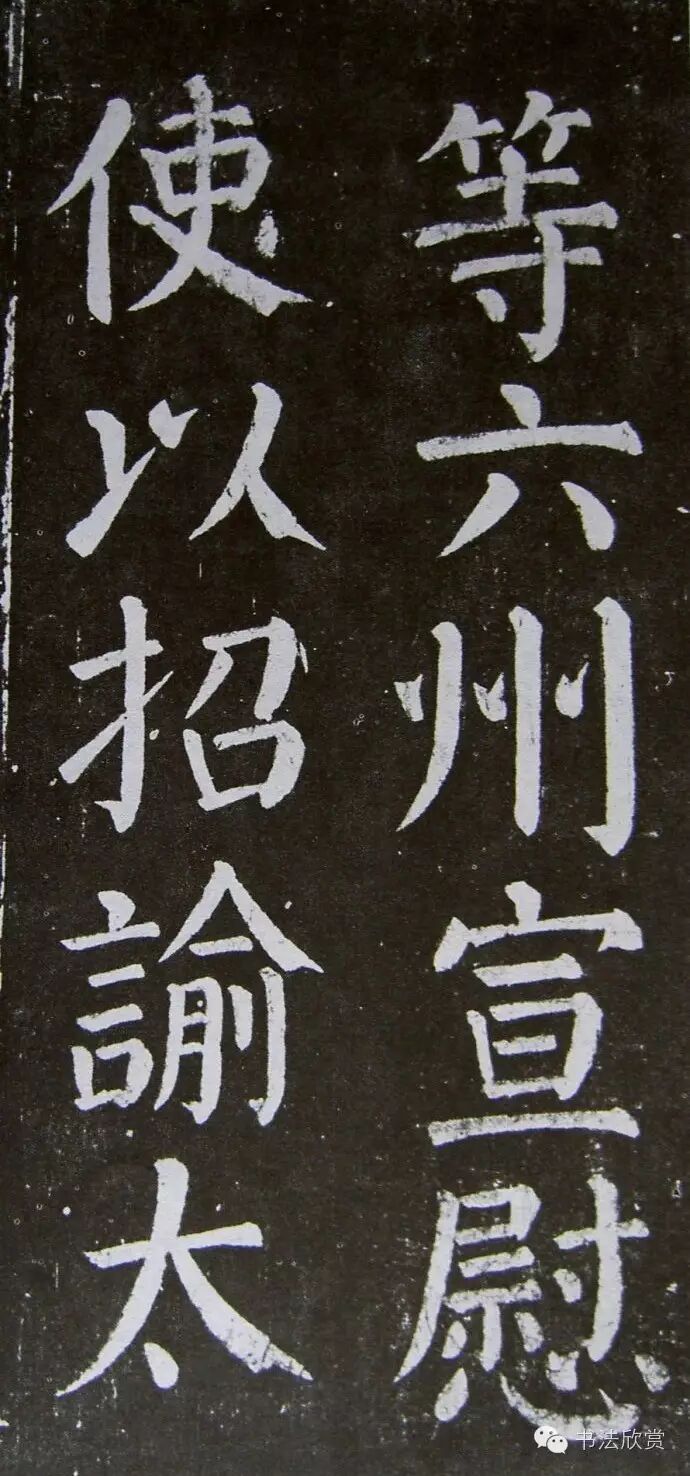 等六州宣慰
使以招諭太
书法欣赏